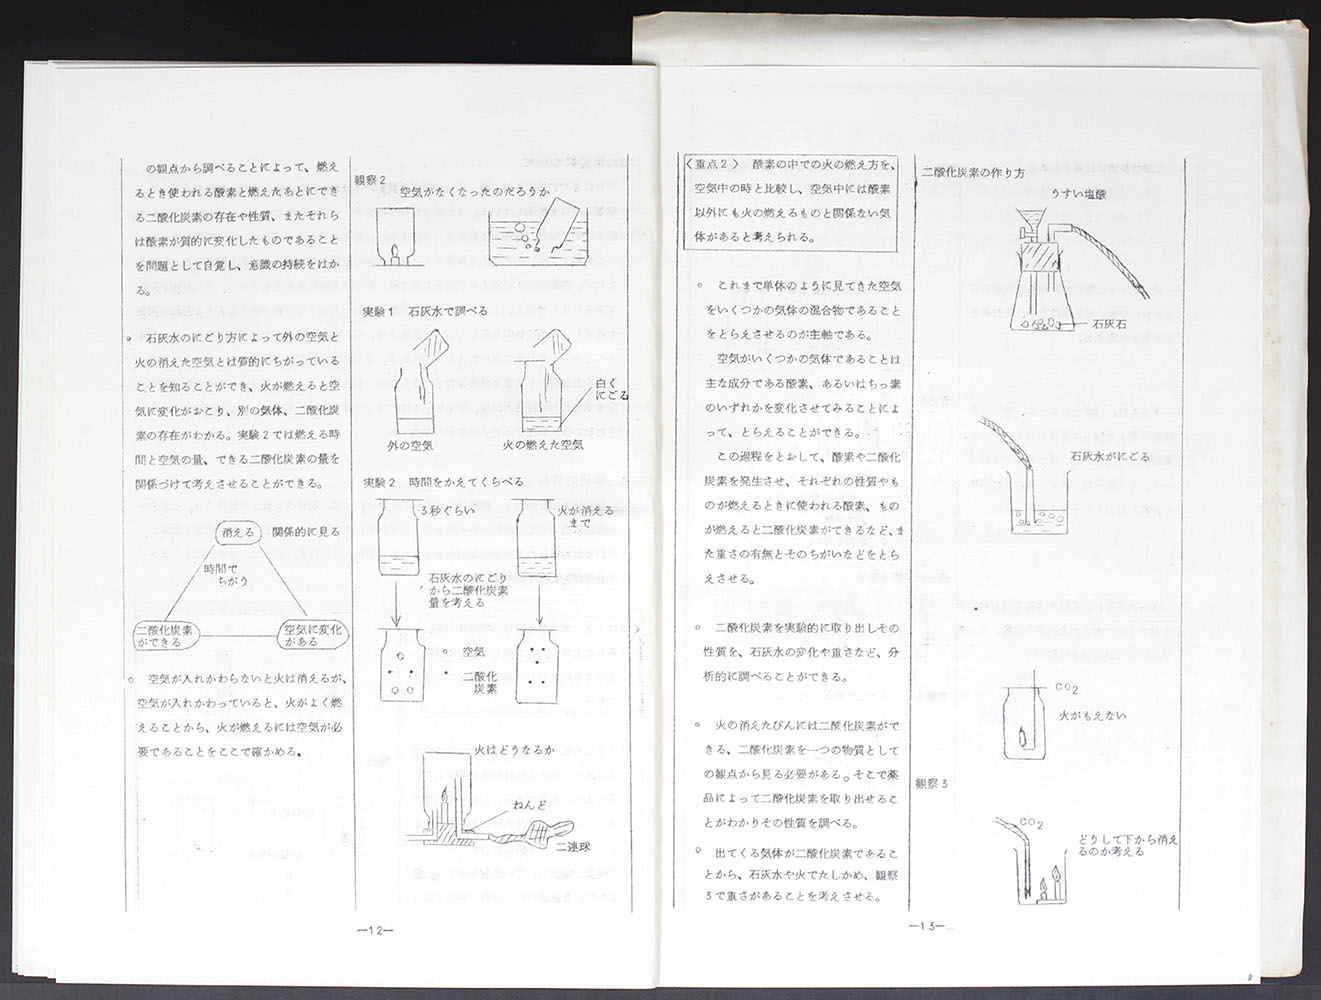 の観点から調べることによって、燃え
るとき使われる酸素と燃えたあとにでき
る二酸化炭素の存在や性質、またそれら
は酸素が質的に変化したものであること
を問題として自覚し、意識の持続をはか
る。
○ 石灰水のにごり方によって外の空気と
火の消えた空気とは質的にちがっている
ことを知ることができ、火が燃えると空
気に変化がおこり、別の気体、二酸化炭
素の存在がわかる。実験2では燃える時
間と空気の量、できる二酸化炭素の量を
関係づけて考えさせることができる。
消える 関係的に見る
時間で
ちがう
二酸化炭素
ができる
空気に変化
がある
○ 空気が入れかわらないと火は消えるが、
空気が入れかわっていると、火がよく燃
えることから、火が燃えるには空気が必
要であることをここで確かめる。
観察2
空気がなくなったのだろうか
実験1 石灰水で調べる
白く
にごる
外の空気
火の燃えた空気
実験2 時間をかえてくらべる
3秒ぐらい
火が消える
まで
石灰水のにごり
から二酸化炭素
量を考える
○ 空気
・ 二酸化
炭素
火はどうなるか
ねんど
二連球
—12—
〈重点2〉 酸素の中での火の燃え方を、
空気中の時と比較し、空気中には酸素
以外にも火の燃えるものと関係ない気
体があると考えられる。
○ これまで単体のように見てきた空気
をいくつかの気体の混合物であること
をとらえさせるのが主軸である。
空気がいくつかの気体であることは
主な成分である酸素、あるいはちっ素
のいずれかを変化させてみることによ
って、とらえることができる。
この過程をとおして、酸素や二酸化
炭素を発生させ、それぞれの性質やも
のが燃えるときに使われる酸素、もの
が燃えると二酸化炭素ができるなど、ま
た重さの有無とそのちがいなどをとら
えさせる。
○ 二酸化炭素を実験的に取り出しその
性質を、石灰水の変化や重さなど、分
析的に調べることができる。
○ 火の消えたびんには二酸化炭素がで
きる、二酸化炭素を一つの物質として
の観点から見る必要がある。そこで薬
品によって二酸化炭素を取り出せるこ
とがわかりその性質を調べる。
○ 出てくる気体が二酸化炭素であるこ
とから、石灰水や火でたしかめ、観察
3で重さがあることを考えさせる。
二酸化炭素の作り方
うすい塩酸
石灰石
石灰水がにごる
CO2
火がもえない
観察3
CO2
どうして下から消え
るのか考える
—13—
8